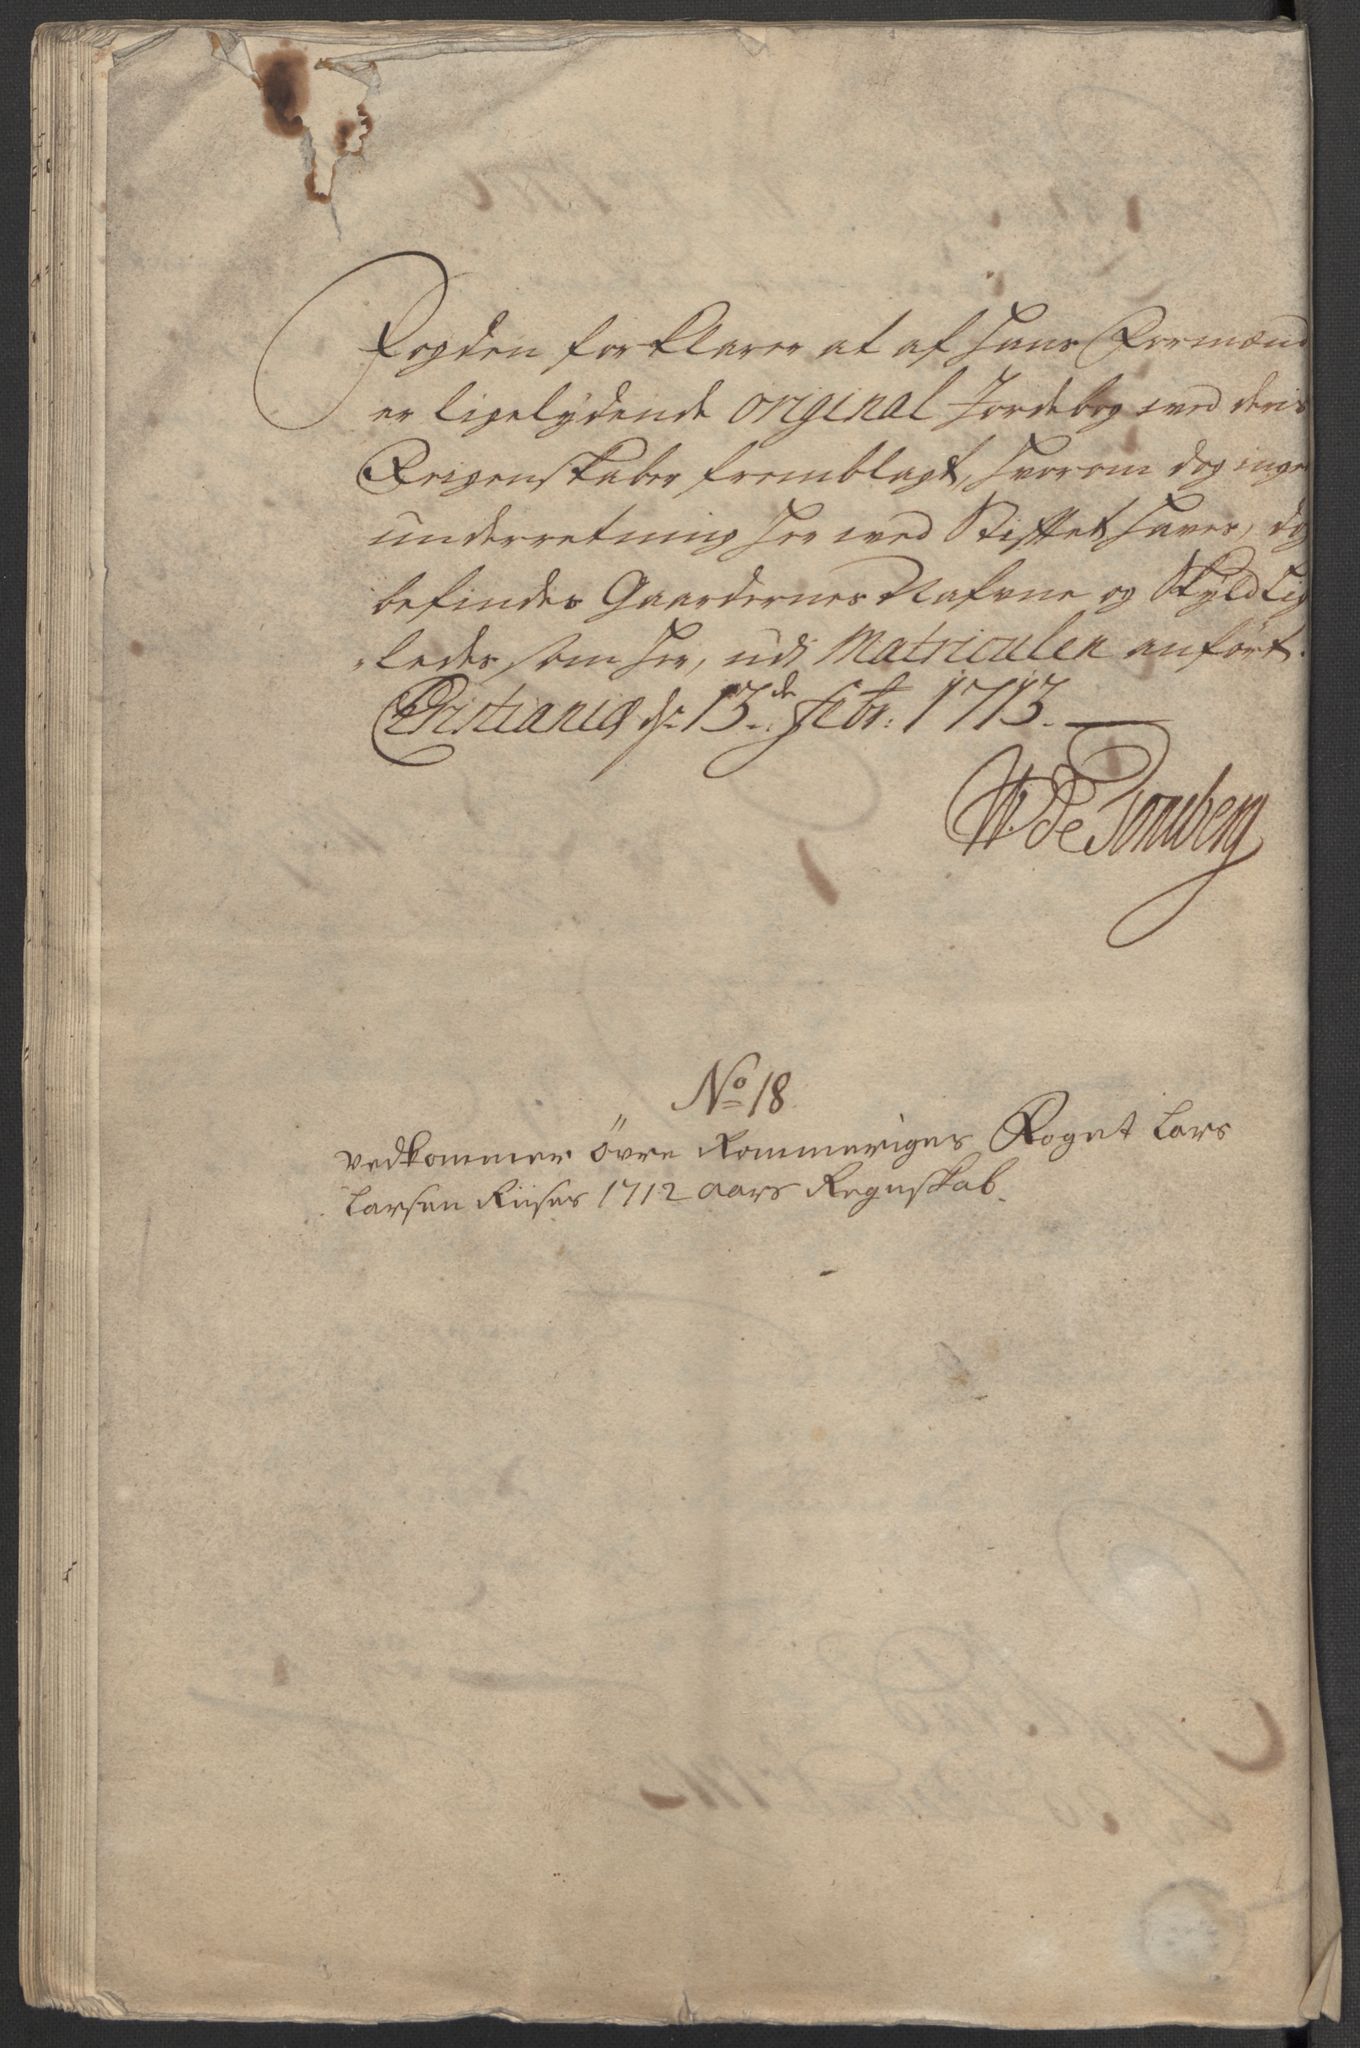 Fogden forklarer at af hans Formænd
er ligelydende original Jordebog med deris
Reigenskaber fremblagt, hvorom dog ingen
underretning her ved Stifftet haves, dog
befindes Gaardernes Nafvne og Skyld lig
ledes som her, udi Matriculen anført.
Christiania d. 13de Febr: 1713.
W. de Tonsberg
No 18
Vedkommer Øvre Rommeriges Foget Lars
Larsen Riises 1712 aars Regnskab.